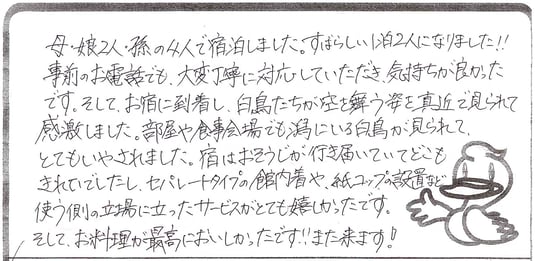 母・娘2人・孫の4人で宿泊しました。すばらしい1泊2人になりました!!
事前のお電話でも、大変丁寧に対応していただき、気持ちが良かった
です。そして、お宿に到着し、白鳥たちが空を舞う姿を真近で見られて
感激しました。部屋や食事会場でも潟にいる白鳥が見られて、
とてもいやされました。宿はおそうじが行き届いていてどこも
きれいでしたし、セパレートタイプの館内着や、紙コップの設置など
使う側の立場に立ったサービスがとても嬉しかったです。
そして、お料理が最高においしかったです!!また来ます!